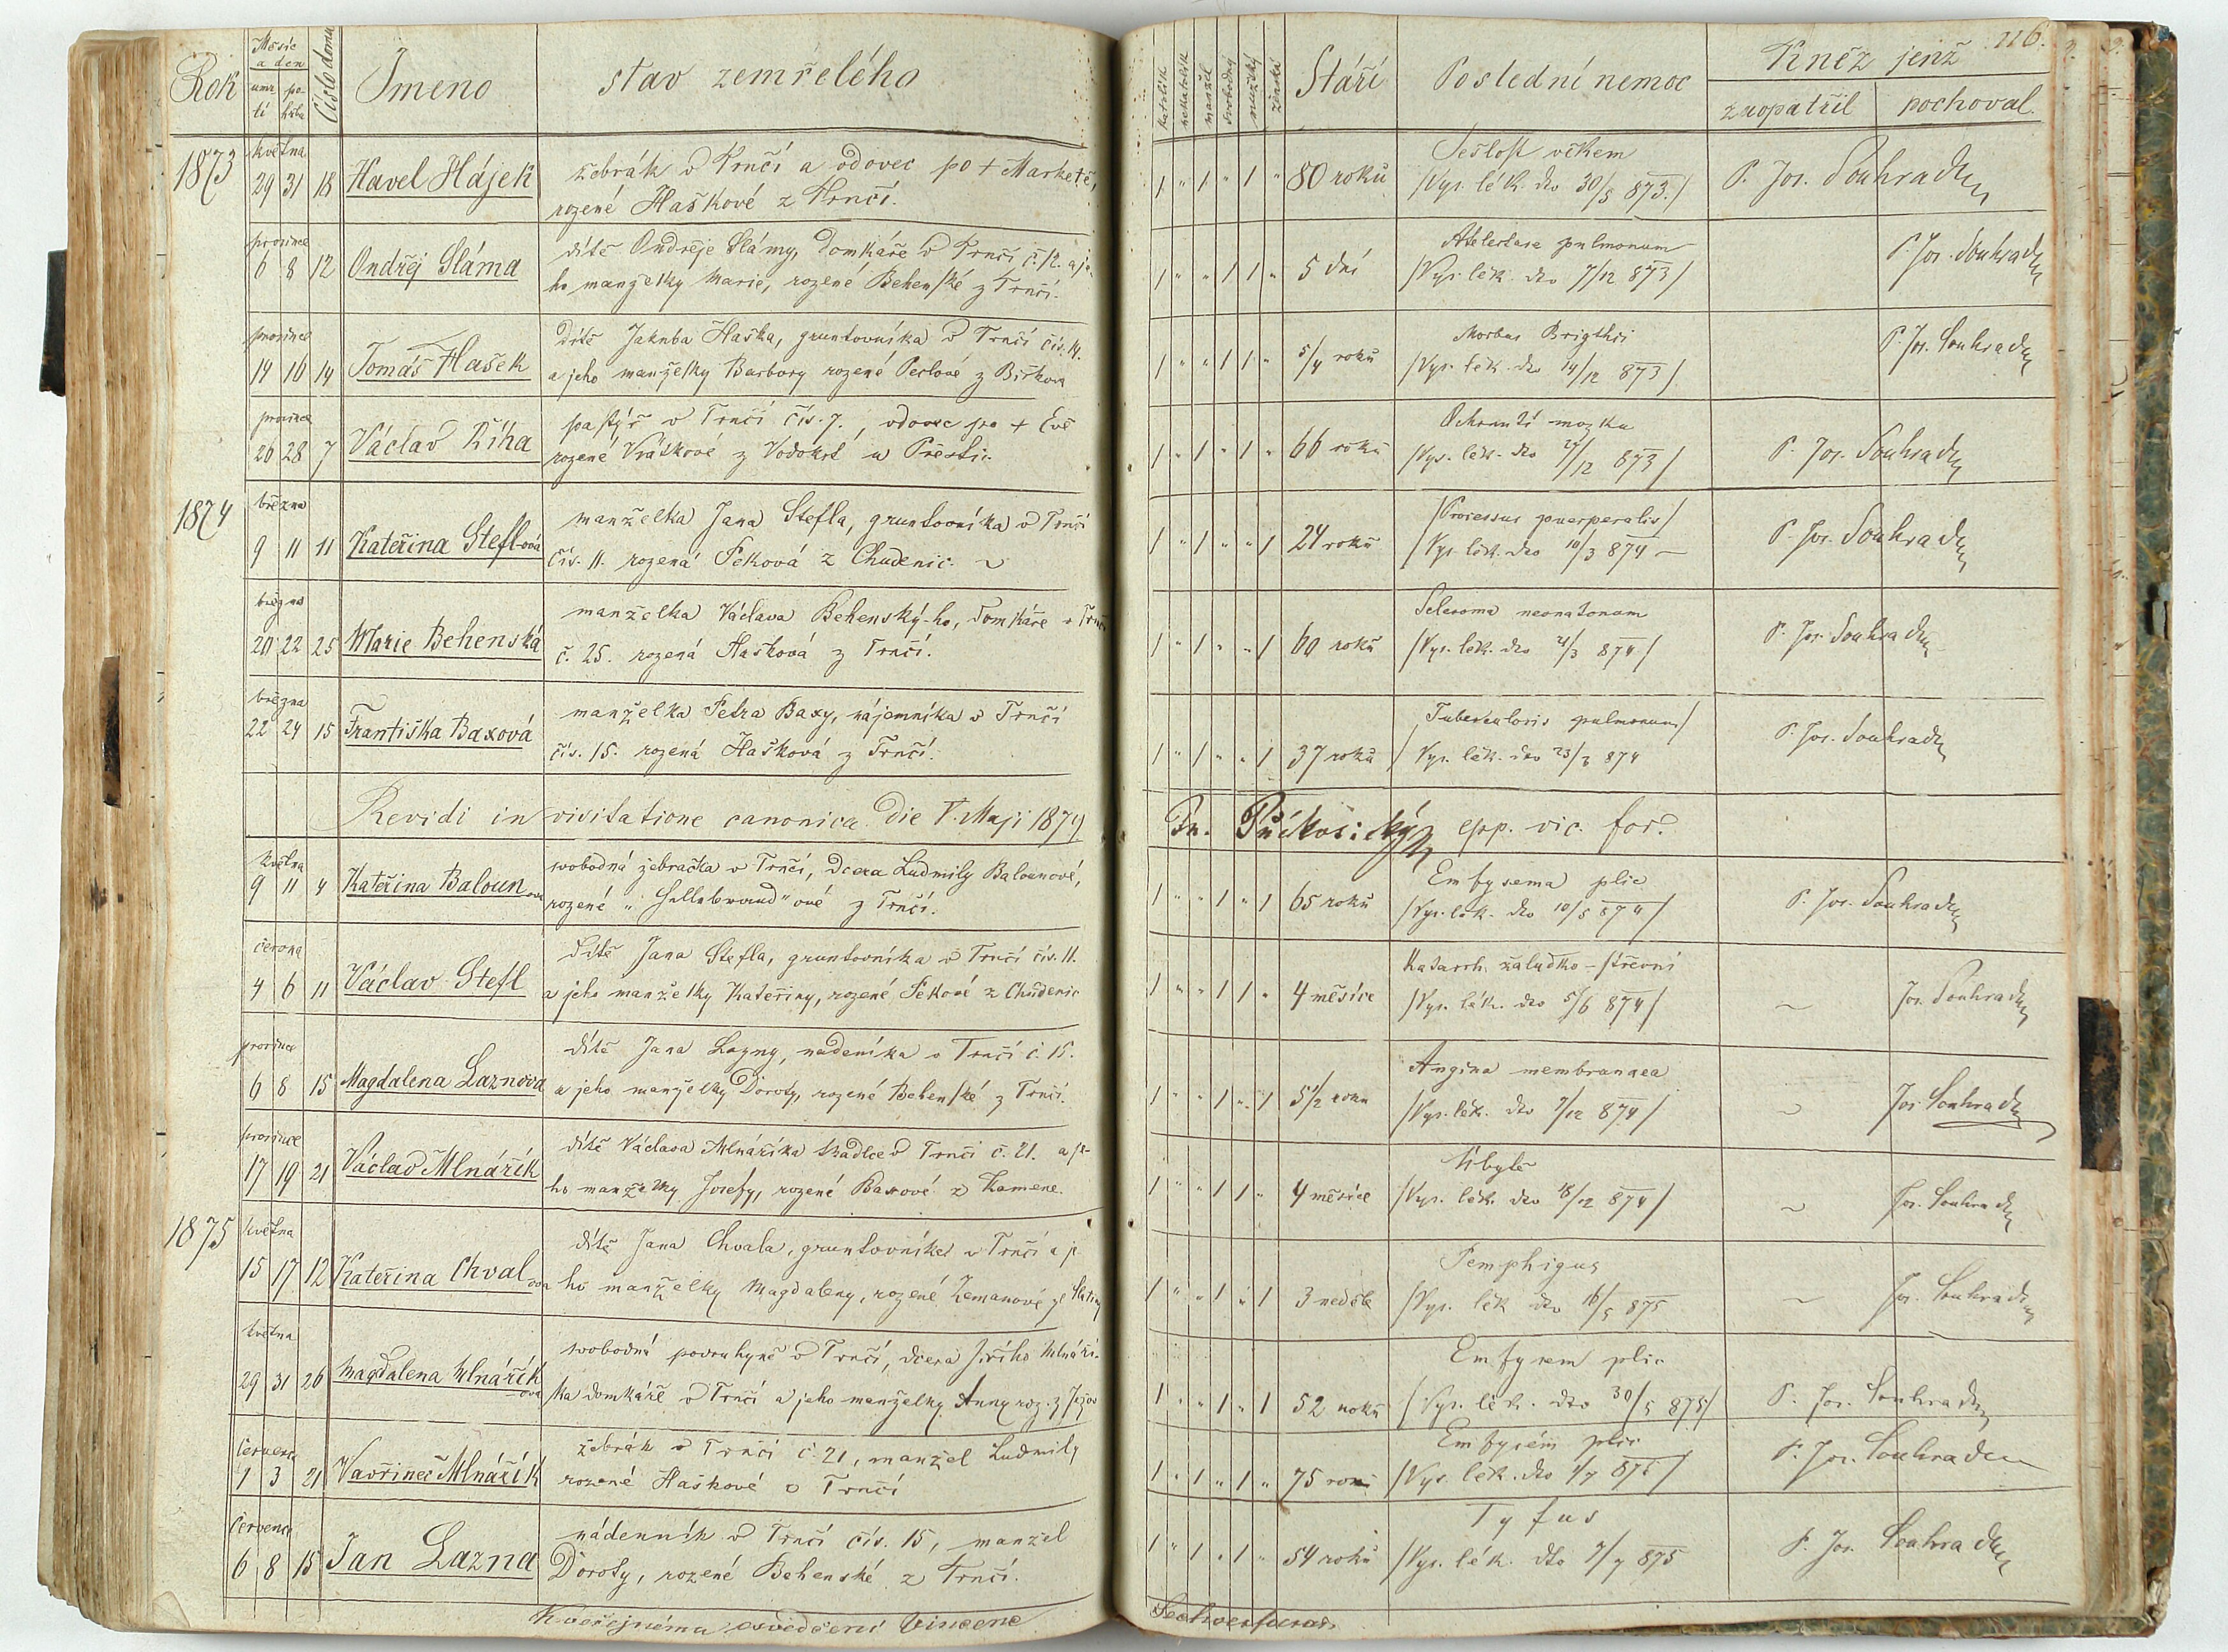 Rok
Měsíc
a den
úmr-
tí
po-
hřbu
Číslo domu
Jmeno
stav zemřelého
katolík
nekatolík
manžel
svobodný
mužský
ženská
Stáří
Poslední nemoc
Kněz jenž
116.
zaopatřil
pochoval.
1873
května
29 31 18 Havel Hájek
žebrák v Trnčí a vdovec po + Marketě,
rozené Haškové z Trnčí.
1 " 1 " 1 " 80 roků
Sešlost věkem
/Vys. lék. dto 30/5 873./
P. Jos. Souhrada
prosince
6 8 12 Ondřej Sláma
dítě Ondřeje Slámy, domkáře v Trnčí č. 12. a je-
ho manželky Marie, rozené Behenské z Trnčí.
1 " " 1 1 " 5 dní
Atelectasa pulmonum
/Vys. lék. dto 7/12 873/
P. Jos. Souhrada
prosince
14 16 14 Tomáš Hašek
Dítě Jakuba Haška, gruntovníka v Trnčí čís. 14.
a jeho manželky Barbory rozené Perlové z Biřkova
1 " " 1 1 " 5/4 roků
Morbus Brigthii
/Vys. lék. dto 14/12 873/
P. Jos. Souhrada
prosince
26 28 7 Václav Říha
pastýř v Trnčí čís. 7., vdovec po + Evě
rozené Vrátkové z Vodokrt u Přeštic.
1 " 1 " 1 " 66 roků
Ochrnutí mozku
/Vys. lék. dto 27/12 873/
P. Jos. Souhrada
1874
března
9 11 11 Kateřina Stefl-ová
manželka Jana Stefla, gruntovníka v Trnčí
čís. 11. rozená Peková z Chudenic. ~
1 " 1 " " 1 24 roků
/Processus puerperalis/
/Vys. lék. dto 10/3 874 –
P. Jos. Souhrada
března
20 22 25 Marie Behenská
manželka Václava Behenský-ho, domkáře v Trnčí
č. 25. rozená Hašková z Trnčí.
1 " 1 " " 1 60 roků
Scleroma neonatonum
/Vys. lék. dto 21/3 874/
P. Jos. Souhrada
března
22 24 15 Františka Baxová
manželka Petra Baxy, nájemníka v Trnčí
čís. 15. rozená Hašková z Trnčí.
1 " 1 " " 1 37 roků
Tuberculosis pulmonum/
/Vys. lék. dto 23/3 874
P. Jos. Souhrada
Revidi in visitatione canonica die 5. Maji 1874
epp. vic. for.
května
9 11 4 Kateřina Baloun ova
svobodná žebračka v Trnčí, dcera Ludmily Balounové,
rozené " Hillebrand" ové z Trnčí.
1 " " 1 " 1 65 roků
Emfysema plic
/Vys. lék. dto 10/5 874/
P. Jos. Souhrada
června
4 6 11 Václav Stefl
Dítě Jana Stefla, gruntovníka v Trnčí čís. 11.
a jeho manželky Kateřiny, rozené Pekové z Chudenic
1 " " 1 1 " 4 měsíce
Katarrh. žaludko-střevní
/Vys. lék. dto 5/6 874/
~
Jos. Souhrada
prosince
6 8 15 Magdalena Laznova
dítě Jana Lazny, nadeníka v Trnčí č. 15.
a jeho manželky Doroty, rozené Behenské z Trnčí.
1 " " 1 " 1 5 1/2 roku
Angina membranaea
/Vys. lék. dto 7/12 874/
~
Jos. Souhrada
prosince
17 19 21 Václav Mlnářík
dítě Václava Mlnáříka tkadlce v Trnčí č. 21. a je-
ho manželky Josefy, rozené Baxové z Kamene.
1 " " 1 1 " 4 měsíce
Úbytě
/Vys. lék. dto 18/12 874/
~
Jos. Souhrada
1875
května
15 17 12 Kateřina Chval ova
dítě Jana Chvala, gruntovníka v Trnčí a je-
ho manželky Magdaleny, rozené Zemanové ze Slatiny
1 " " 1 " 1 3 neděle
Pemphigus
/Vys. lék dto 16/5 875
~
Jos. Souhrada
května
29 31 26 Magdalena Mlnářík
ova
svobodná podruhyně v Trnčí, dcera Jiřího Mlnáří-
ka domkáře v Trnčí a jeho manželky Anny roz. z Ježov
1 " " 1 " 1 52 roků
Emfysem plic
/Vys. lék. dto 30/5 875/
P. Jos. Souhrada
července
1 3 21 Vavřinec Mlnářík
žebrák v Trnčí č. 21, manžel Ludmily
rozené Haškové v Trnčí
1 " 1 " 1 " 75 roků
Emfysém plic
/Vys. lék. dto 1/7 875/
P. Jos. Souhrada
července
6 8 15 Jan Lazna
nádenník v Trnčí čís. 15, manžel
Doroty, rozené Behenské z Trnčí.
1 " 1 " 1 " 54 roků
Tyfus
/Vys. lék. dto 7/7 875
P. Jos. Souhrada
K veřejnému osvědčení Vincenc